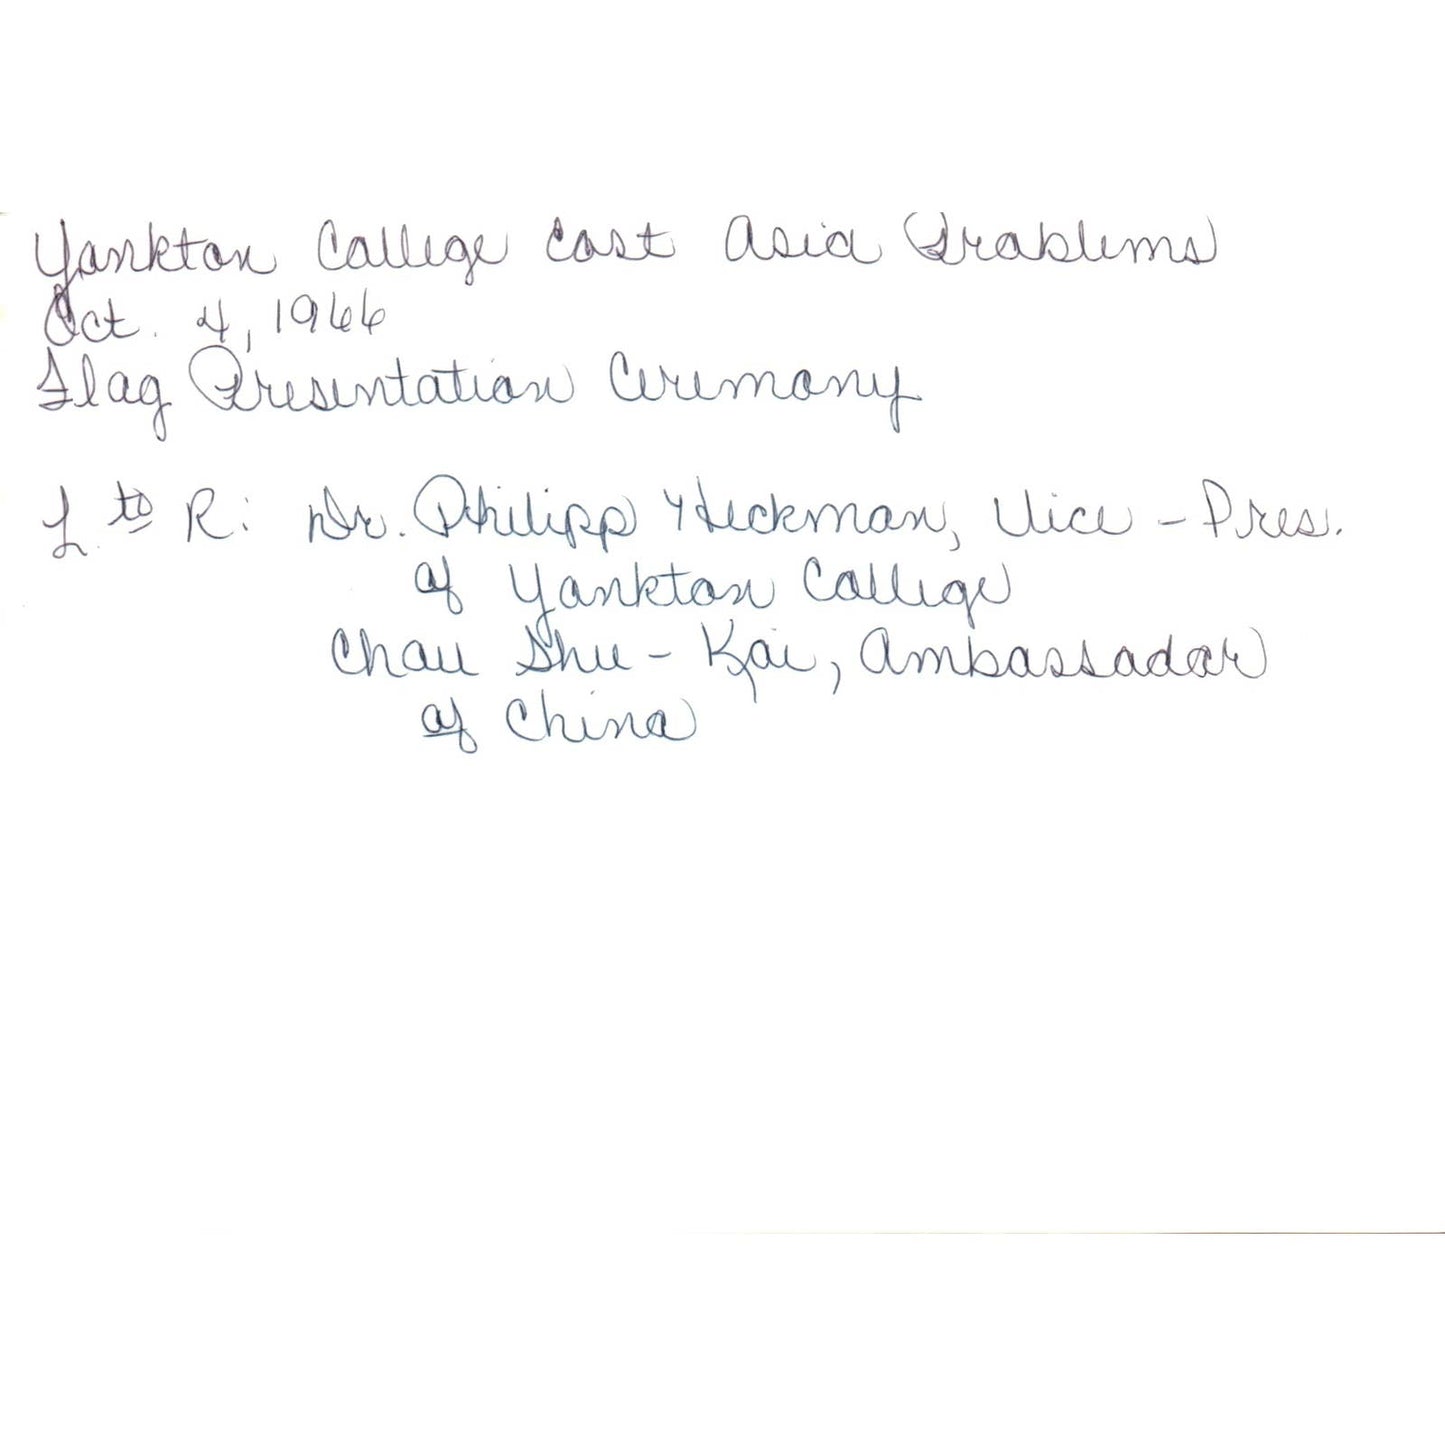 Yankton College East Asia Problems
Oct. 4, 1966
Flag Presentation Ceremony
L. to R: Dr. Philipp Heckman, Vice-Pres.
of Yankton College
Chau Shu-Kai, Ambassador
of China